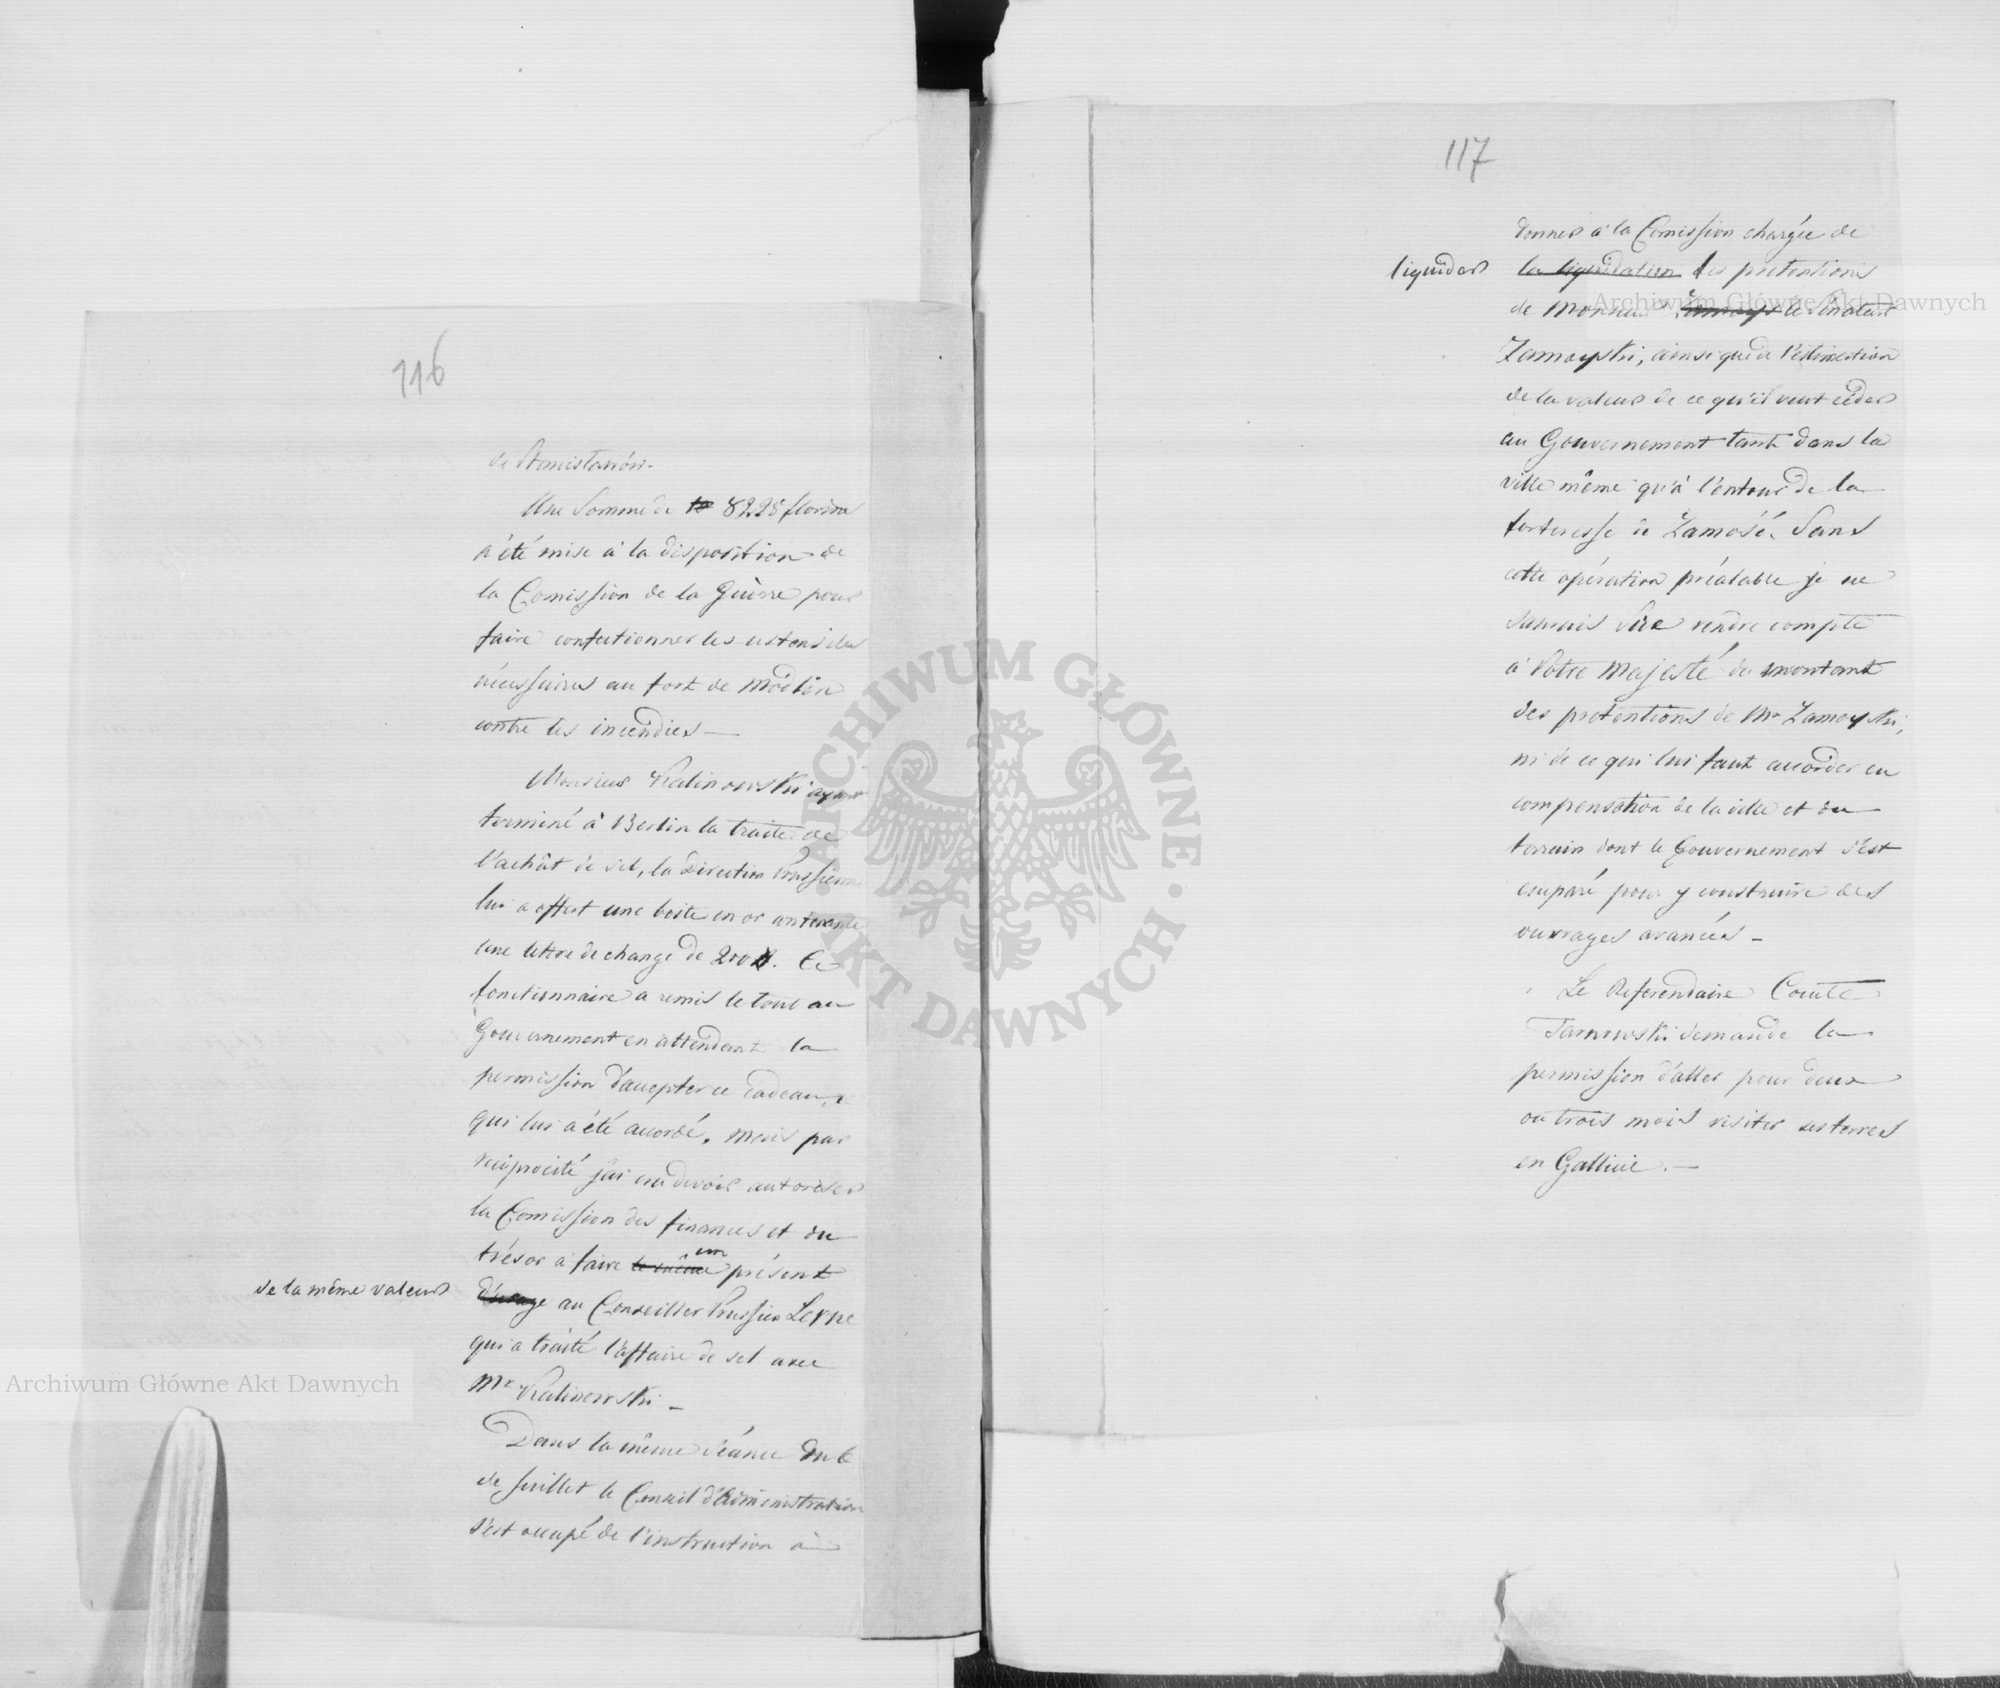 116
de Stanisławów.
Une Somme de 8225 florins
a été mise à la disposition de
la Comission de la Guèrre pour
faire confectionner les ustensiles
nécessaires au fort de Modlin
contre les incendies —
Monsieur Kalinowski ayant
terminé à Berlin la traité de
l'achât de sel, la Direction Prussienne
lui a offert une boite en or contenante
une lettre de change de 200 #. Ce
fonctionnaire a remis le tout au
Gouvernement en attendant la
permission d'accepter ce cadeau, ce
qui lui a été accordé, mais par
réciprocité j'ai cru devoir autoriser
la Comission des finances et du
trésor à faire le même un présent
de la même valeur d'usage au Conseiller Prussien Leppe
qui a traité l'affaire de sel avec
Mr Kalinowski —
Dans la même Séance du 6
de Juillet le Conseil d'Administration
s'est occupé de l'instruction à
117
donner à la Comission chargée de
liquider la liquidation les pretentions
de Monsieur Zamoys le Sénateur
Zamoyski, ainsi que de l'estimation
de la valeur de ce qu'il veut céder
au Gouvernement tant dans la
ville même qu'à l'entour de la
forteresse de Zamość. Sans
cette opération préalable je ne
saurais Sire rendre compte
à Votre Majesté du montant
des pretentions de Mr Zamoyski,
ni de ce qui lui faut accorder en
compensation de la ville et du
terrain dont le Gouvernement s'est
emparé pour y construire des
ouvrages avancés —
Le Referendaire Comte
Tarnowski demande la
permission d'aller pour deux
ou trois mois visiter ses terres
en Gallicie. —
Archiwum Główne Akt Dawnych
Archiwum Główne Akt Dawnych
ARCHIWUM GŁÓWNE
AKT DAWNYCH